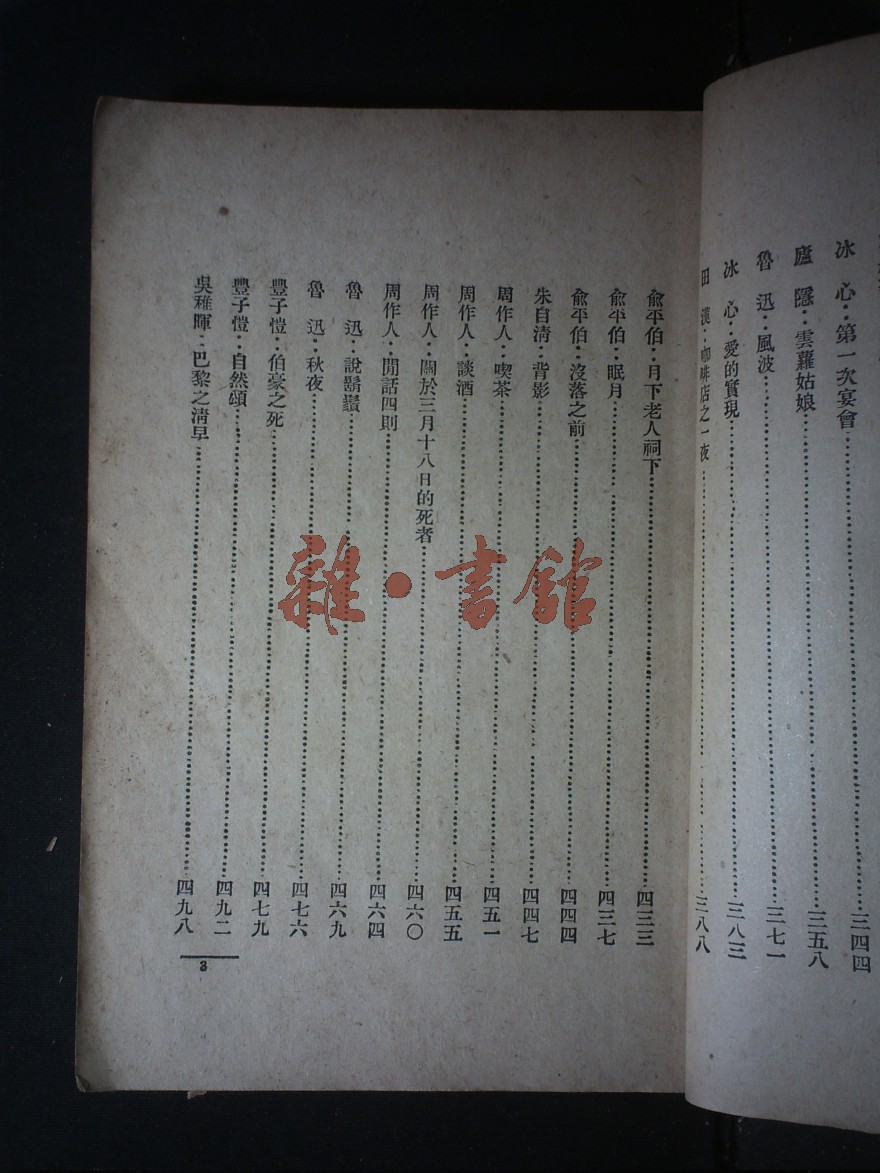 冰　心：第一次宴會……三四四
廬　隱：雲蘿姑娘……三五八
魯　迅：風波……三七一
冰　心：愛的實現……三八三
田　漢：咖啡店之一夜……三八八
俞平伯：月下老人祠下……四三三
俞平伯：眠月……四三七
俞平伯：沒落之前……四四四
朱自清：背影……四四七
周作人：喫茶……四五一
周作人：談酒……四五五
周作人：關於三月十八日的死者……四六〇
周作人：閒話四則……四六四
魯　迅：說鬍鬚……四六九
魯　迅：秋夜……四七六
豐子愷：伯豪之死……四七九
豐子愷：自然頌……四九二
吳稚暉：巴黎之清早……四九八
3
雜·書館